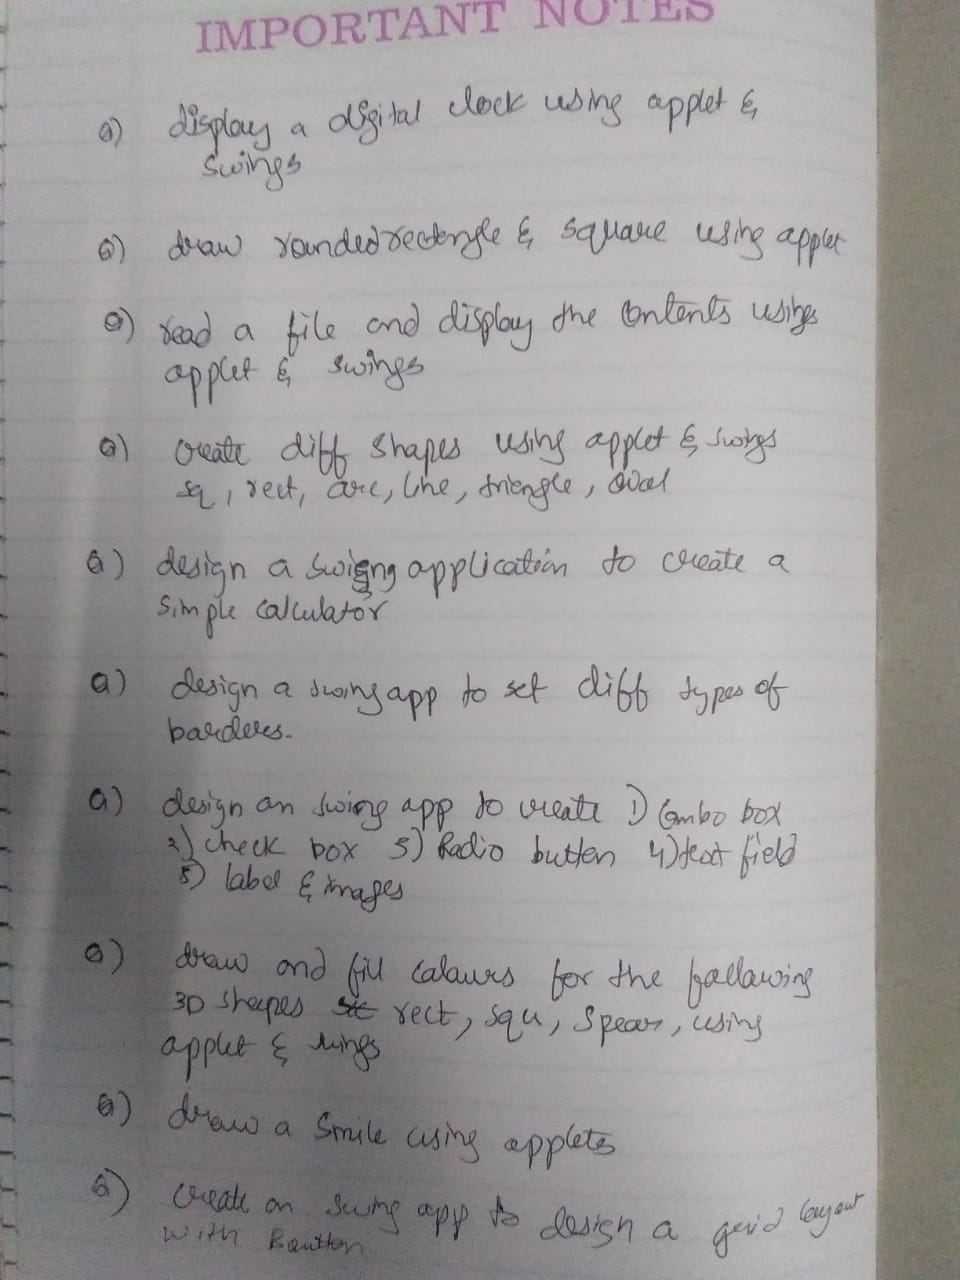 IMPORTANT NOTES
Q) display a digital clock using applet &
swings
Q) draw roundedrectangle & square using applet
Q) read a file and display the contents using
applet & swings
Q) create diff shapes using applet & swings
sq, rect, arc, line, triangle, oval
Q) design a swigng application to create a
simple calculator
Q) design a swing app to set diff types of
barders.
Q) design an swing app to create 1) Combo box
2) check box 3) Radio button 4) text field
5) label & images
Q) draw and fill calaurs for the fallawing
3D shapes rect, squ, spear, using
applet &
Q) draw a Smile using applets
Q) create an swing app to design a grid layout
with Bautton